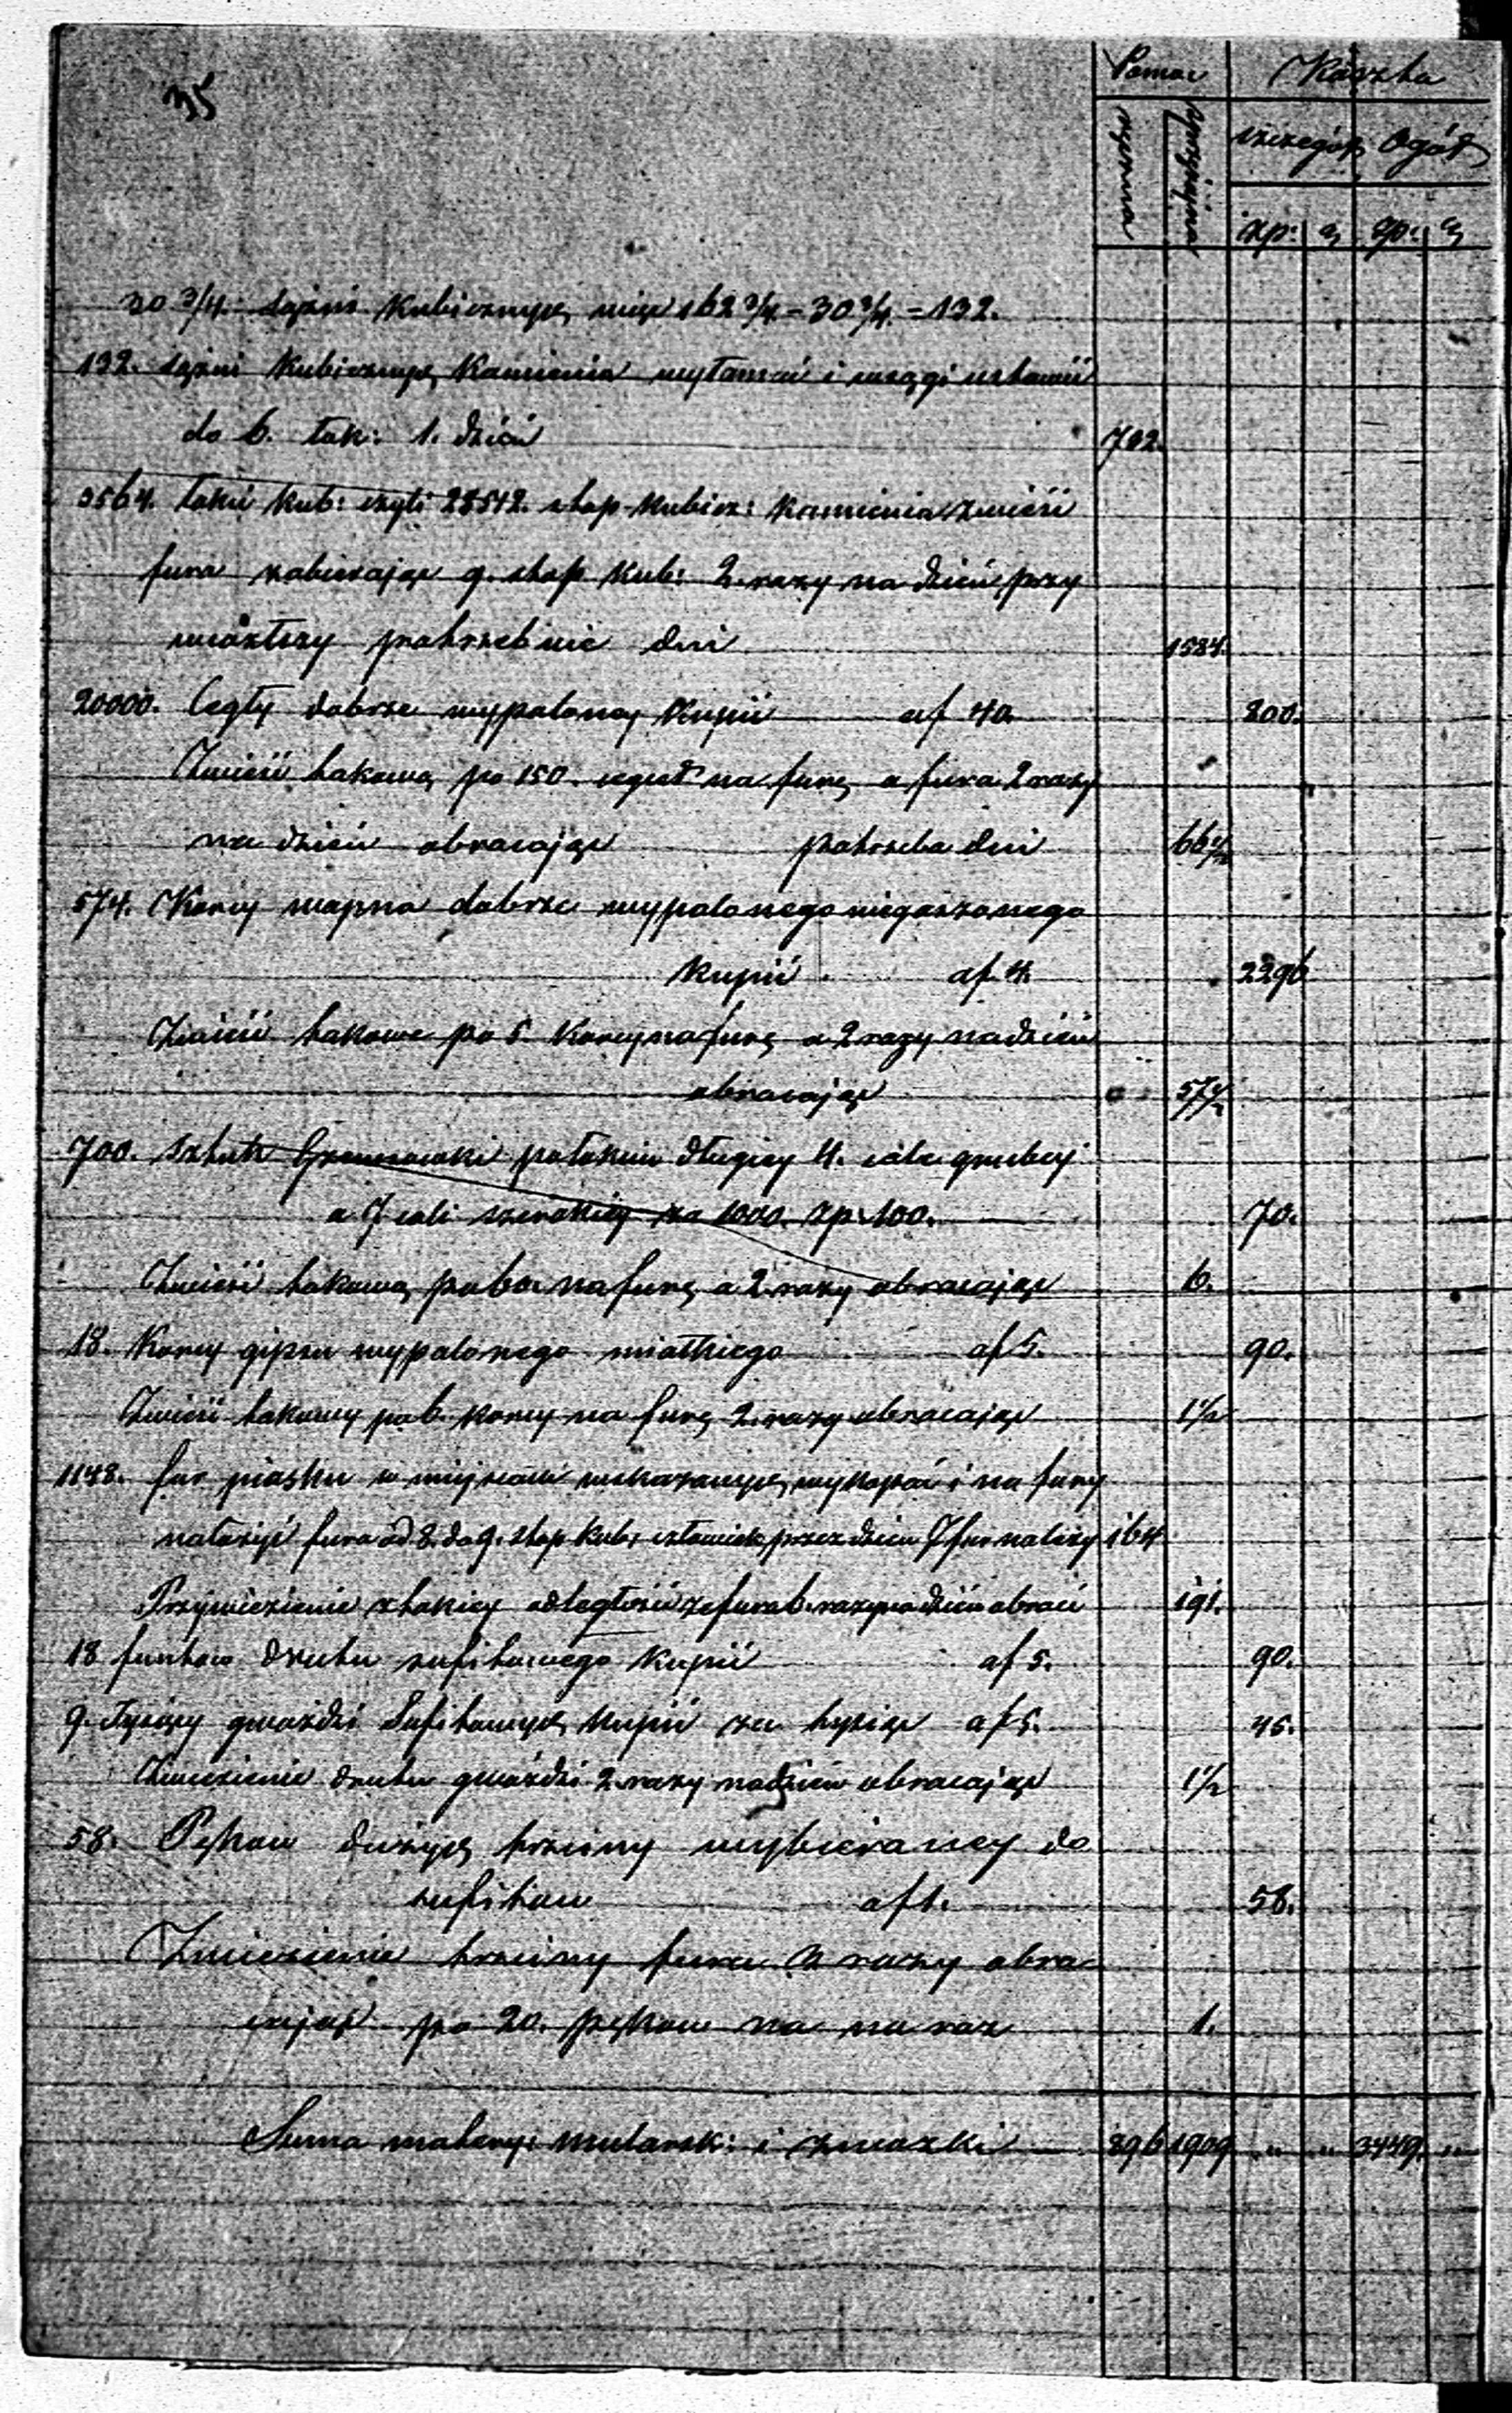 35
Pomoc Koszta
ręczna sprzężajna szczegóło Ogóło
zp: g zp: g
30 3/4. sążni kubicznych więc 162 3/4 - 30 3/4. = 132.
132. sążni kubicznych kamienia wyłamać i w sągi ustawić
do 6. łok: 1. dzień 792.
3564. łokci kub: czyli 28512. stop kubicz: kamienia zwieść
fura zabierając 9. stop kub: 2. razy na dzień, przy
potrzebnie dni 1584.
20000. Cegły dobrze wypaloney kupić af 40. 800.
Zwieść takową po 150. cegieł na furę a fura 2 razy
na dzień obracając potrzeba dni 66 1/2
574. Korcy wapna dobrze wypalonego niegaszonego
kupić af 4. 2296
Zwieść takowe po 5. korcy na furę a 2 razy na dzień
obracając 57 1/2
700. sztuk pałaków długiey 4. cale grubey
a 7 cali szerokiey za 1000 zp. 100. 70.
Zwieść takową po 60. na furę a 2. razy obracając 6.
18. Korcy gipsu wypalonego miałkiego af 5. 90.
Zwieść takowy po 6. korcy na furę 2. razy obracając 1 1/2
1148. fur piasku w miejscach wskazanych wykopać i na fury
nałożyć fura od 8. do 9. stop kub: człowiek przez dzień 7 fur należy 164.
Przywiezienie z takiey odległości że fura 6. razy na dzień obraci 191.
18 funtow drutu sufitowego kupić af 5. 90.
9. Tysięcy gwoździ Sufitowych kupić za tysiąc af 5. 45.
Zwiezienie drutu gwoździ 2. razy na dzień obracając 1 1/2
58. Pękow dużych trzciny wybieraney do
sufitow af 1. 58.
Zwiezienie trzciny fura 3 razy obra-
cając po 20. pękow na na raz 1.
Suma matery: mularsk: i zwózki 896 1909 " " 3449. "